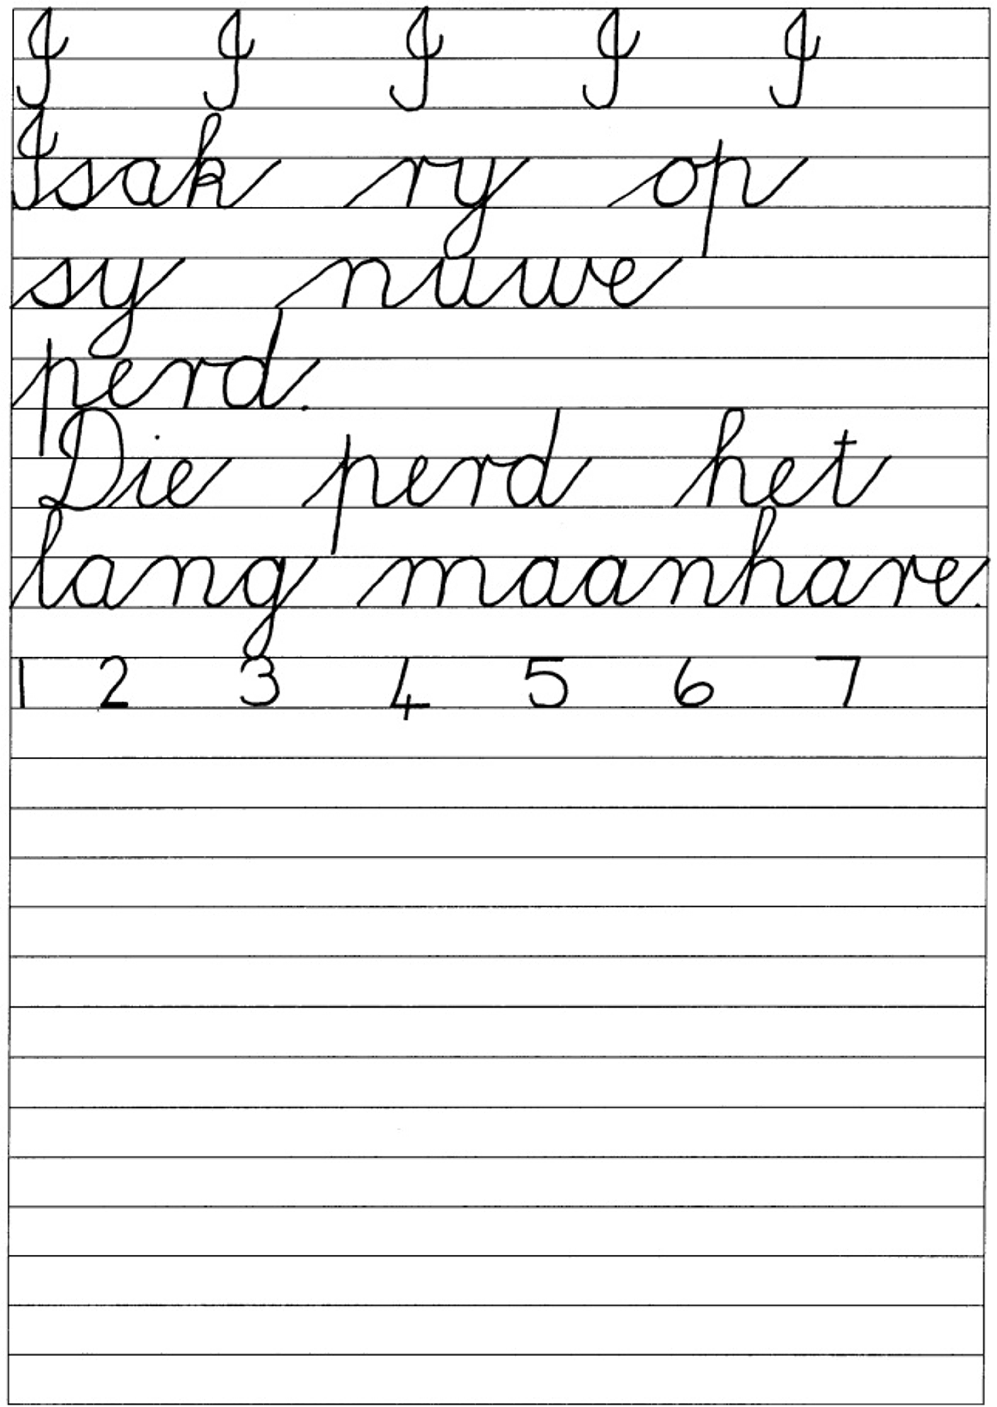 I I I I I
Isak ry op
sy nuwe
perd.
Die perd het
lang maanhare.
1 2 3 4 5 6 7